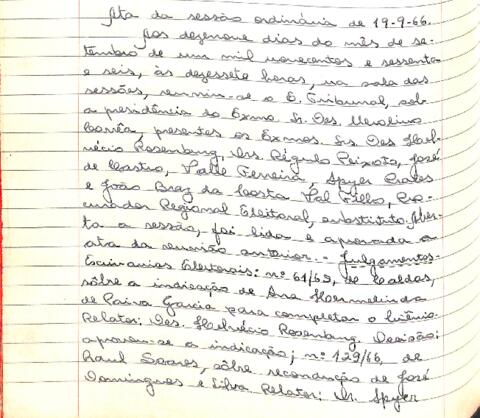 Ata da sessão ordinária de 19-9-66.
Aos dezenove dias do mês de se-
tembro de um mil novecentos e sessenta
e seis, às dezessete horas, na sala das
sessões, reuniu-se o E. Tribunal, sob
a presidência do Exmo. Sr. Des. Merolino
Corrêa, presentes os Exmos. Srs. Des. Hel-
vécio Rosenburg, Drs. Régulo Peixoto, José
de Castro, Valle Ferreira, Spyer Prates
e João Braz da Costa Val Filho, Pro-
curador Regional Eleitoral, substituto. Aber-
ta a sessão, foi lida e aprovada a
ata da reunião anterior. - Julgamentos -
Escrivanias Eleitorais: nº 61/65, de Caldas,
sôbre a indicação de Ana Hermelinda
de Paiva Garcia para completar o biênio.
Relator: Des. Helvécio Rosenburg. Decisão:
aprovou-se a indicação; nº 129/66, de
Raul Soares, sôbre recondução de José
Domingues e Silva. Relator: Dr. Spyer